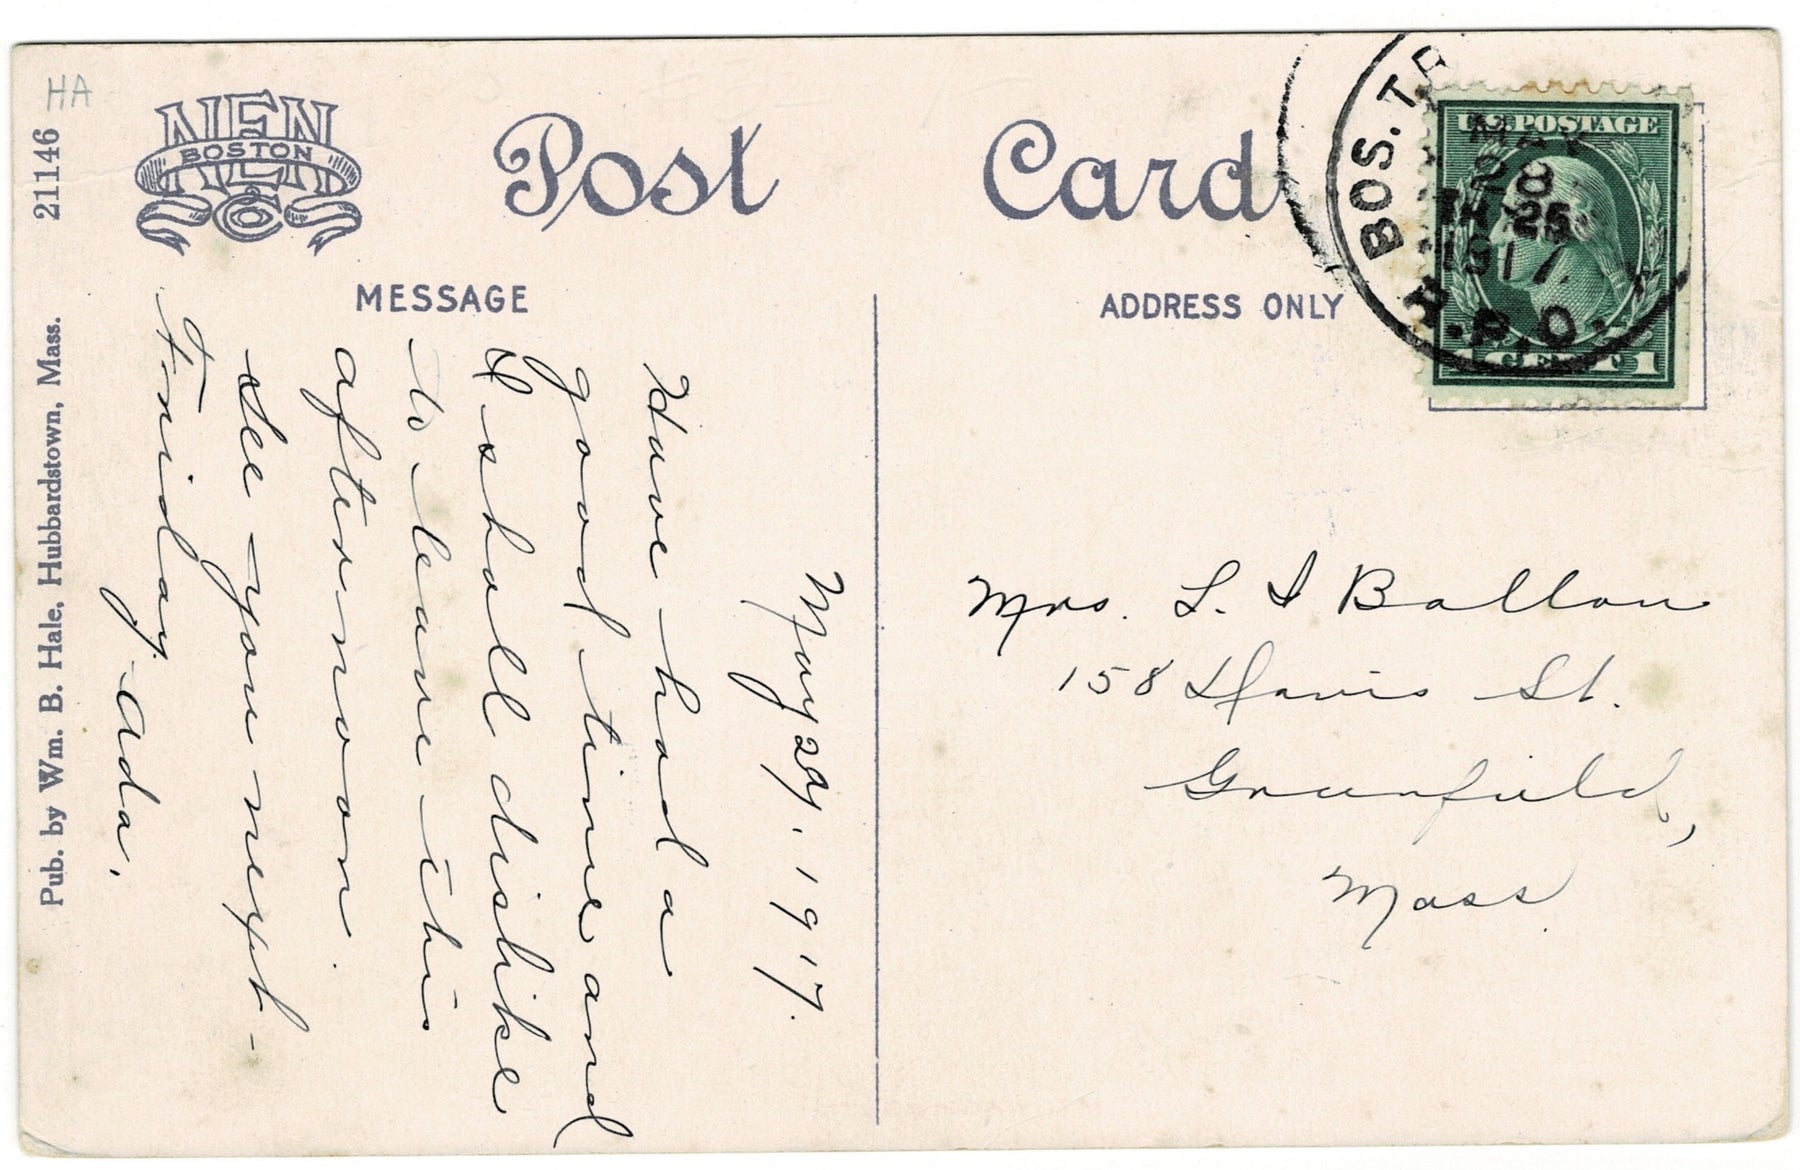 HA
21146
Pub. by Wm. B. Hale, Hubbardstown, Mass.
NENCO
BOSTON
Post Card
MESSAGE
ADDRESS ONLY
May 29, 1917.
Have had a
good time and
I shall dislike
to leave this
afternoon.
See you next -
Friday.
Ada.
BOS. T.
MAY
28
1917
R.P.O.
U.S. POSTAGE
1 CENT 1
Mrs. L. I Ballou
158 Davis St.
Greenfield,
Mass.